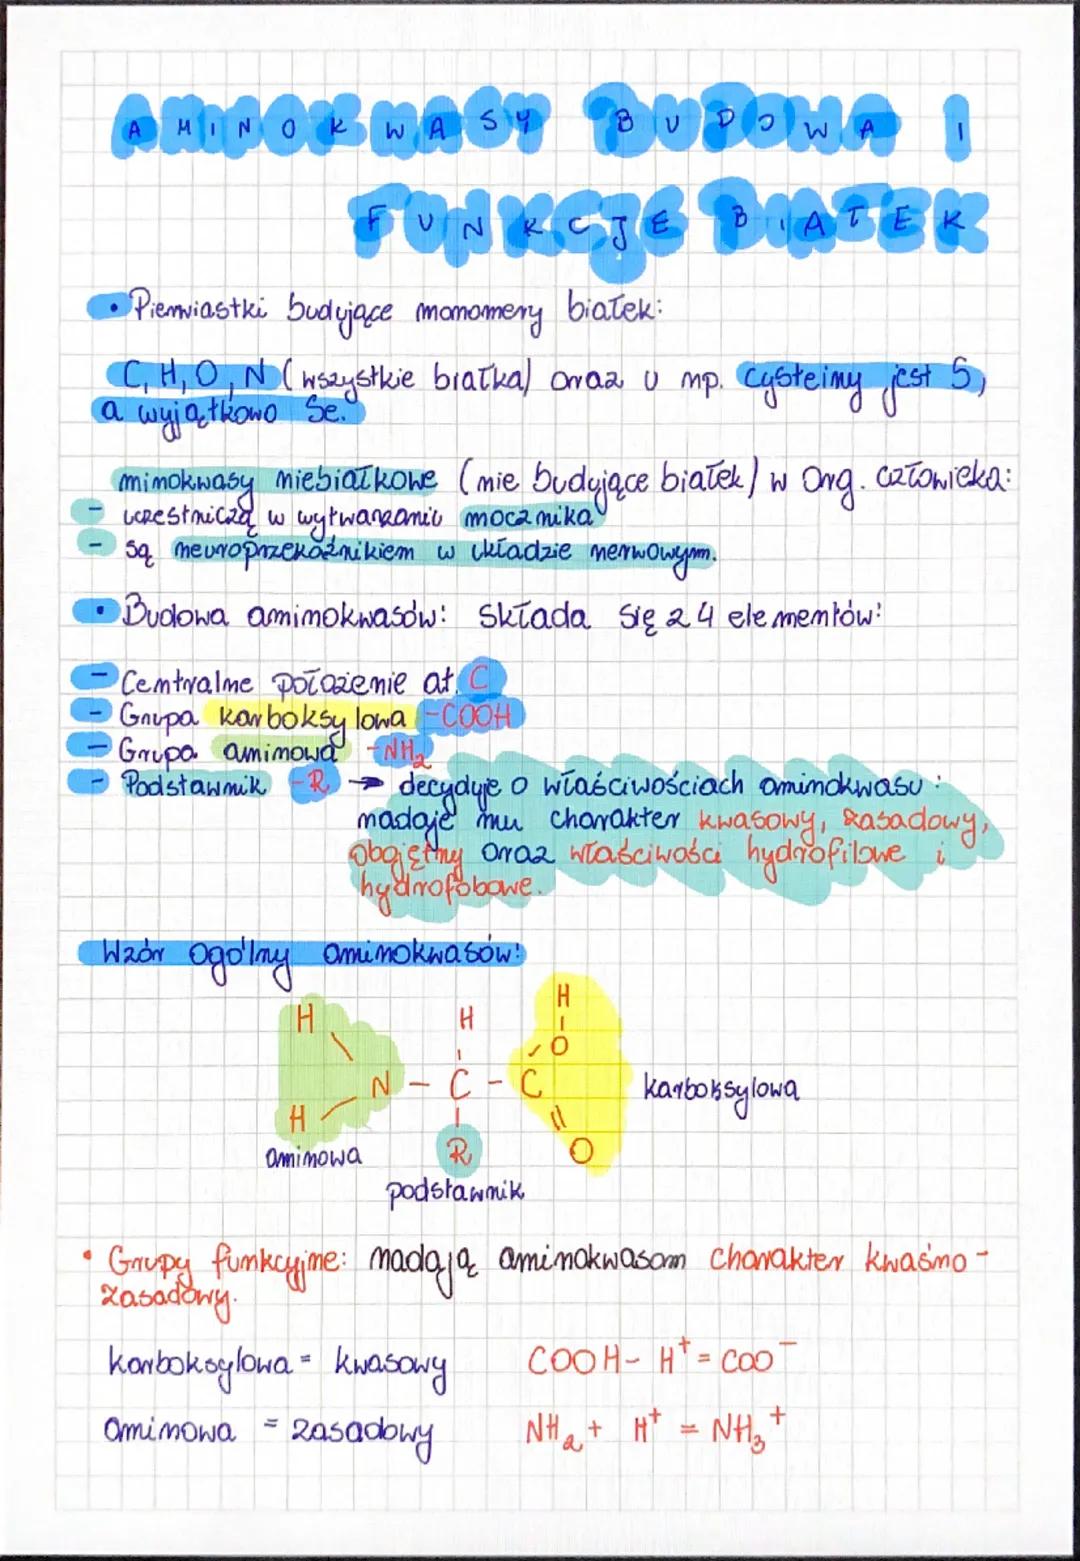 AMINOKWASY BUDOWA I
FUNKCJE BIAŁEK
• Pierwiastki budujące monomery białek:
C, H, O, N (wszystkie białka) oraz u np. cysteiny jest S,
a wyjątkowo Se.
minokwasy niebiałkowe (nie budujące białek) w org. człowieka:
- uczestniczą w wytwarzaniu mocznika
- są neuroprzekaźnikiem w układzie nerwowym.
• Budowa aminokwasów: Składa się z 4 elementów:
- Centralne położenie at. C
- Grupa karboksylowa -COOH
- Grupa aminowa -NH2
- Podstawnik -R → decyduje o właściwościach aminokwasu:
nadaje mu charakter kwasowy, zasadowy,
obojętny oraz właściwości hydrofilowe i
hydrofobowe.
Wzór ogólny aminokwasów:
H H H
O
N - C - C karboksylowa
H R O
aminowa
podstawnik
• Grupy funkcyjne: nadają aminokwasom charakter kwaśno-
zasadowy.
karboksylowa = kwasowy COOH - H⁺ = COO⁻
aminowa = zasadowy NH₂ + H⁺ = NH₃⁺